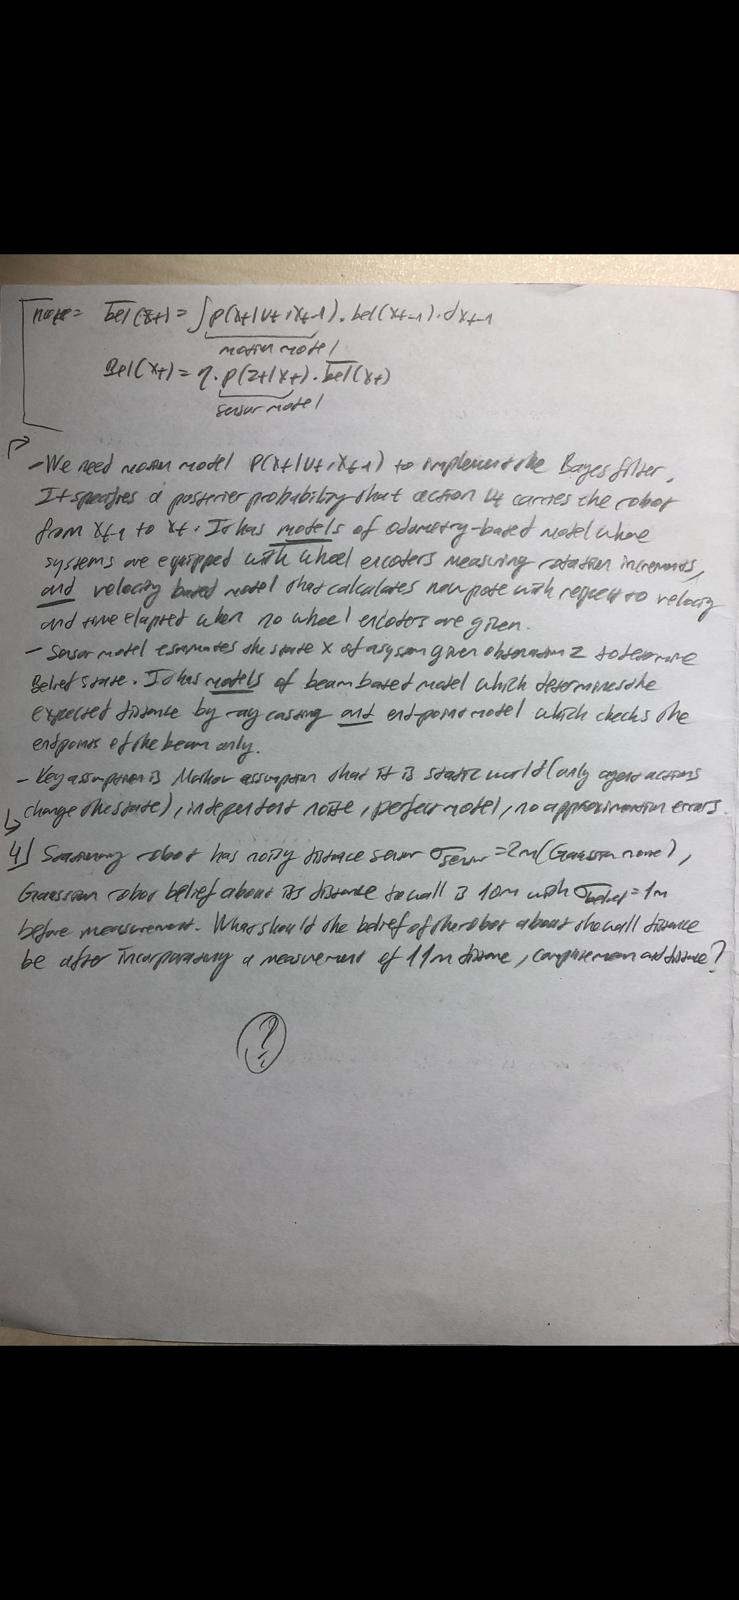 note= bel(xt) = ∫p(xt|ut,xt-1).bel(xt-1).dxt-1
motion model
Bel(xt) = η.p(zt|xt).bel(xt)
sensor model
-We need motion model p(xt|ut,xt-1) to implement the Bayes filter.
It specifies a posterior probability that action ut carries the robot
from xt-1 to xt. It has models of odometry-based model where
systems are equipped with wheel encoters measuring rotation increments,
and velocity based motel that calculates new pose with respect to velocity
and time elapset when no wheel encoters are given.
- Sensor motel estimates the state x of a system given observation z to determine
Belief state. It has models of beam baset motel which determines the
expected distance by ray casting and end-point model which checks the
endpoints of the beam only.
- Key assumption is Markov assumption that it is static world (only agent actions
change the state), independent noise, perfect motel, no approximation errors.
4) Stationary robot has noisy distance sensor σsensor=2m (Gaussian noise),
Gaussian robot belief about its distance to wall is 10m with σbelief=1m
before measurement. What should the belief of the robot about the wall distance
be after incorporating a measurement of 11m distance, compute mean and
?